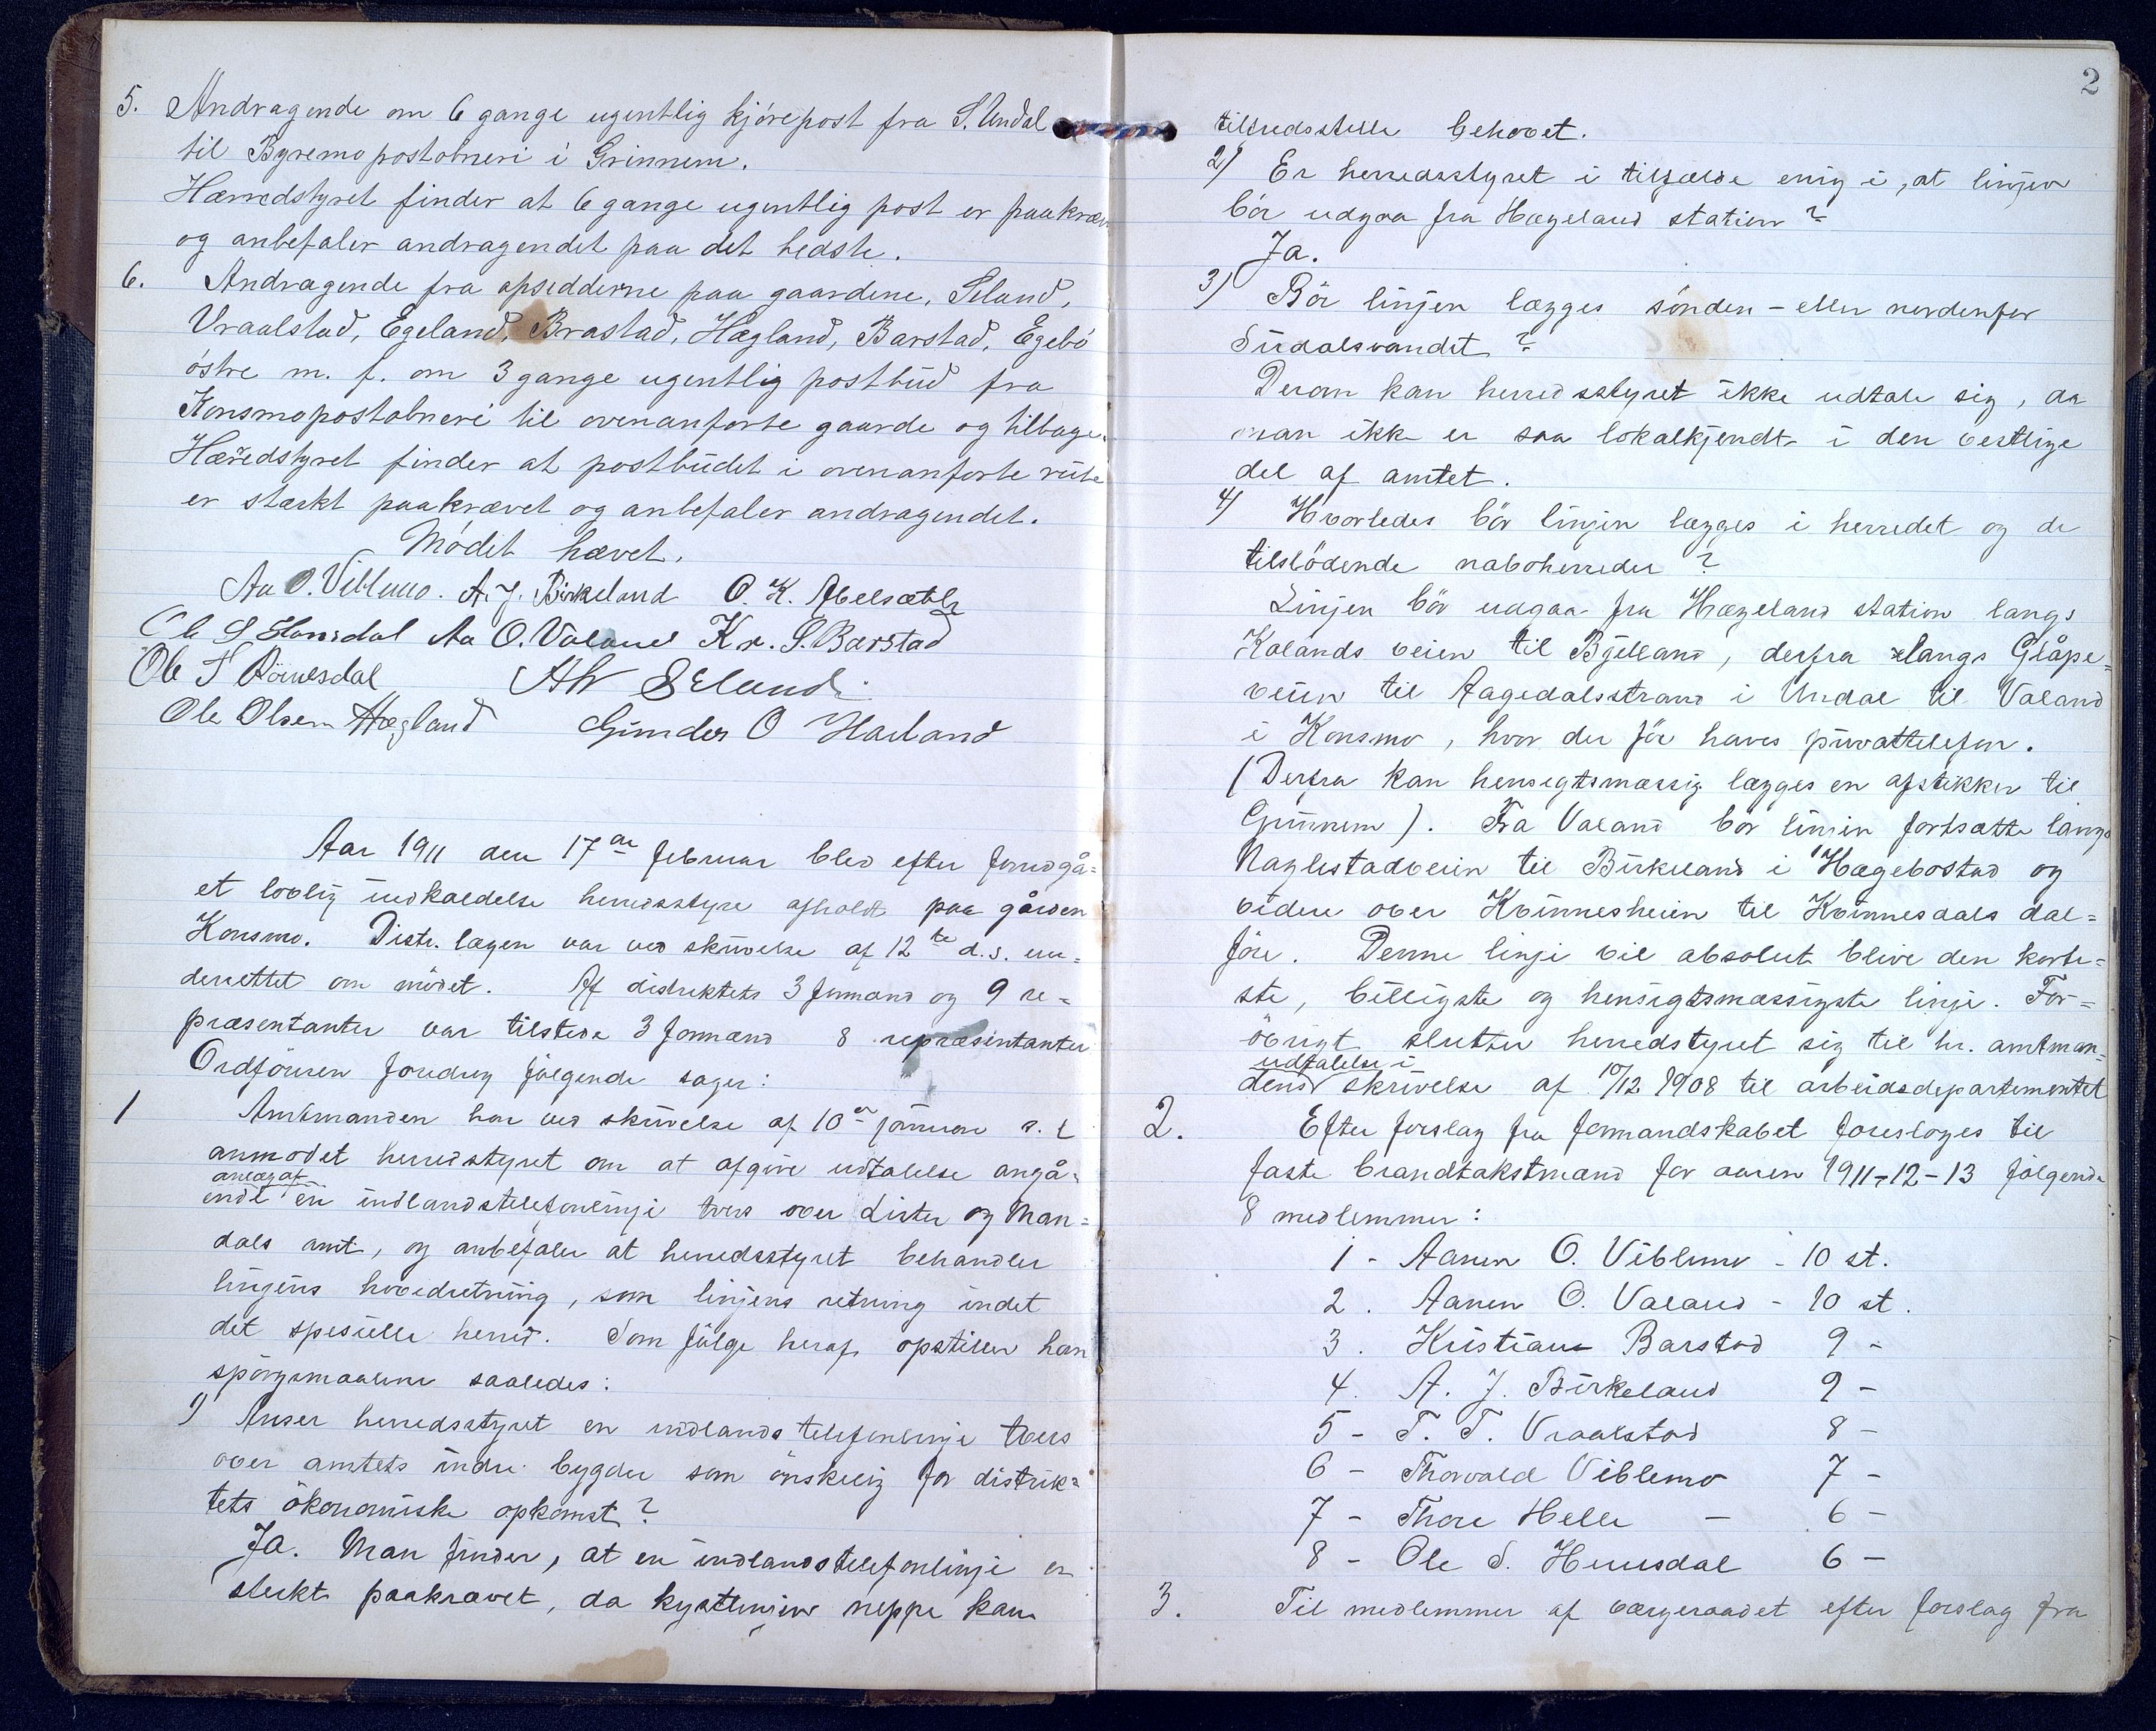 5. Andragende om 6 gange ugentlig kjørepost fra S. Undal
til Byremo postabneri i Grinnem.
Hærredstyret finder at 6 gange ugentlig post er paakræv
og anbefaler andragendet paa det bedste.
6. Andragende fra opsedderne paa gaardene, Seland,
Vraalstad, Egeland, Brastad, Hægland, Barstad, Egebø
østre m. f. om 3 gange ugentlig postbud fra
Konsmo postabneri til ovenanførte gaarde og tilbage.
Hærredstyret finder at postbudet i ovenanførte rute
er stærkt paakrævet og anbefaler andragendet.
Mødet hævet.
Aa O. Viblemo. A. J. Birkeland O. K. Abelsæth
Ole S. Aa O. Valand Kr. S. Barstad
Ole Seland
Ole Olsen Hægland Gunder O Harland
Aar 1911 den 17de februar blev efter forudgå-
et lovlig indkaldelse herredsstyre afholdt paa gården
Konsmo. Distr. lægen var ved skrivelse af 12te d.s. un-
derrettet om mødet. Af distriktets 3 formænd og 9 re-
præsentanter var tilstede 3 formænd 8 repræsentanter
Ordføreren foredrog følgende sager:
1 Amtmanden har ved skrivelse af 10de januar s. l
anmodet herredstyret om at afgive udtalelse angå-
anlæg af
ende en indlandstelefonlinje tvers over Lister og Man-
dals amt, og anbefaler at herredsstyret behandler
linjens hovedretning, som linjens retning indet
det spesielle herred. Som følge heraf opstiller han
spørgsmaalene saaledes:
1) Anser herredsstyret en indlands telefonlinje tvers
over amtets indre bygder som ønskelig for distrik-
tets økonomiske opkomst?
Ja. Man finder, at en indlandstelefonlinje er
sterkt paakrævet, da kystlinjen neppe kan
2
tilfredsstelle behovet.
2) Er herredsstyret i tilfælde enig i, at linjen
bør udgaa fra Hægeland station?
Ja.
3) Bør linjen lægges sønden - eller nordenfor
Sirdalsvandet?
Derom kan herredsstyret ikke udtale sig, da
man ikke er saa lokalkjendt i den vestlige
del af amtet.
4) Hvorledes bør linjen lægges i herredet og de
tilstødende naboherreder?
Linjen bør udgaa fra Hægeland station langs
Kolands veien til Bjelland, derfra langs Glåpe-
veien til Aagedalsstrand i Undal til Valand
i Konsmo, hvor der før haves privattelefon.
(Derfra kan hensigtsmæssig lægges en afstikker til
Grinnem). Fra Valand bør linjen fortsætte langs
Naglestadveien til Birkeland i Hægebostad og
videre over Kvinnesheien til Kvinnesdals dal-
føre. Denne linje vil absolut blive den korte-
ste, billigste og hensigtsmæssigste linje. For-
øvrigt slutter herredstyret sig til hr. amtman-
udtalelse i
dens skrivelse af 10/12 1908 til arbeidsdepartementet
2. Efter forslag fra formandskabet foresloges til
faste brandtakstmænd for aaren 1911-12-13 følgende
8 medlemmer:
1 - Aanen O. Viblemo - 10 st.
2. Aanen O. Valand - 10 st.
3. Kristian Barstad 9 -
4. A. J. Birkeland 9 -
5 - T. T. Vraalstad 8 -
6 - Thorvald Viblemo 7 -
7 - Thore Helle - 6 -
8 - Ole S. 6 -
3. Til medlemmer af værgeraadet efter forslag fra